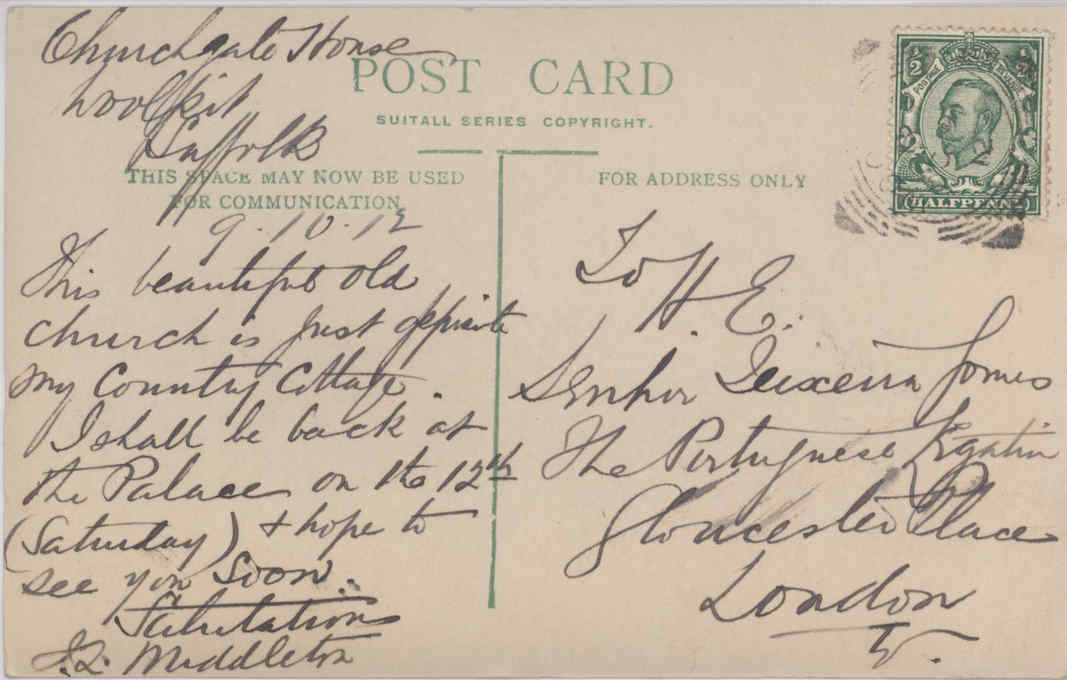 Churchgate House
Woolpit
Suffolk
POST CARD
SUITALL SERIES COPYRIGHT.
THIS SPACE MAY NOW BE USED
FOR COMMUNICATION
FOR ADDRESS ONLY
9.10.12
This beautiful old
church is just opposite
my Country Cottage.
I shall be back at
the Palace on the 12th
(Saturday) & hope to
see you soon.
Salutations
Middleton
To H.E.
Senhor Teixeira Gomes
The Portuguese Legation
Gloucester Place
London
W.
½ ½
POSTAGE REVENUE
HALFPENNY